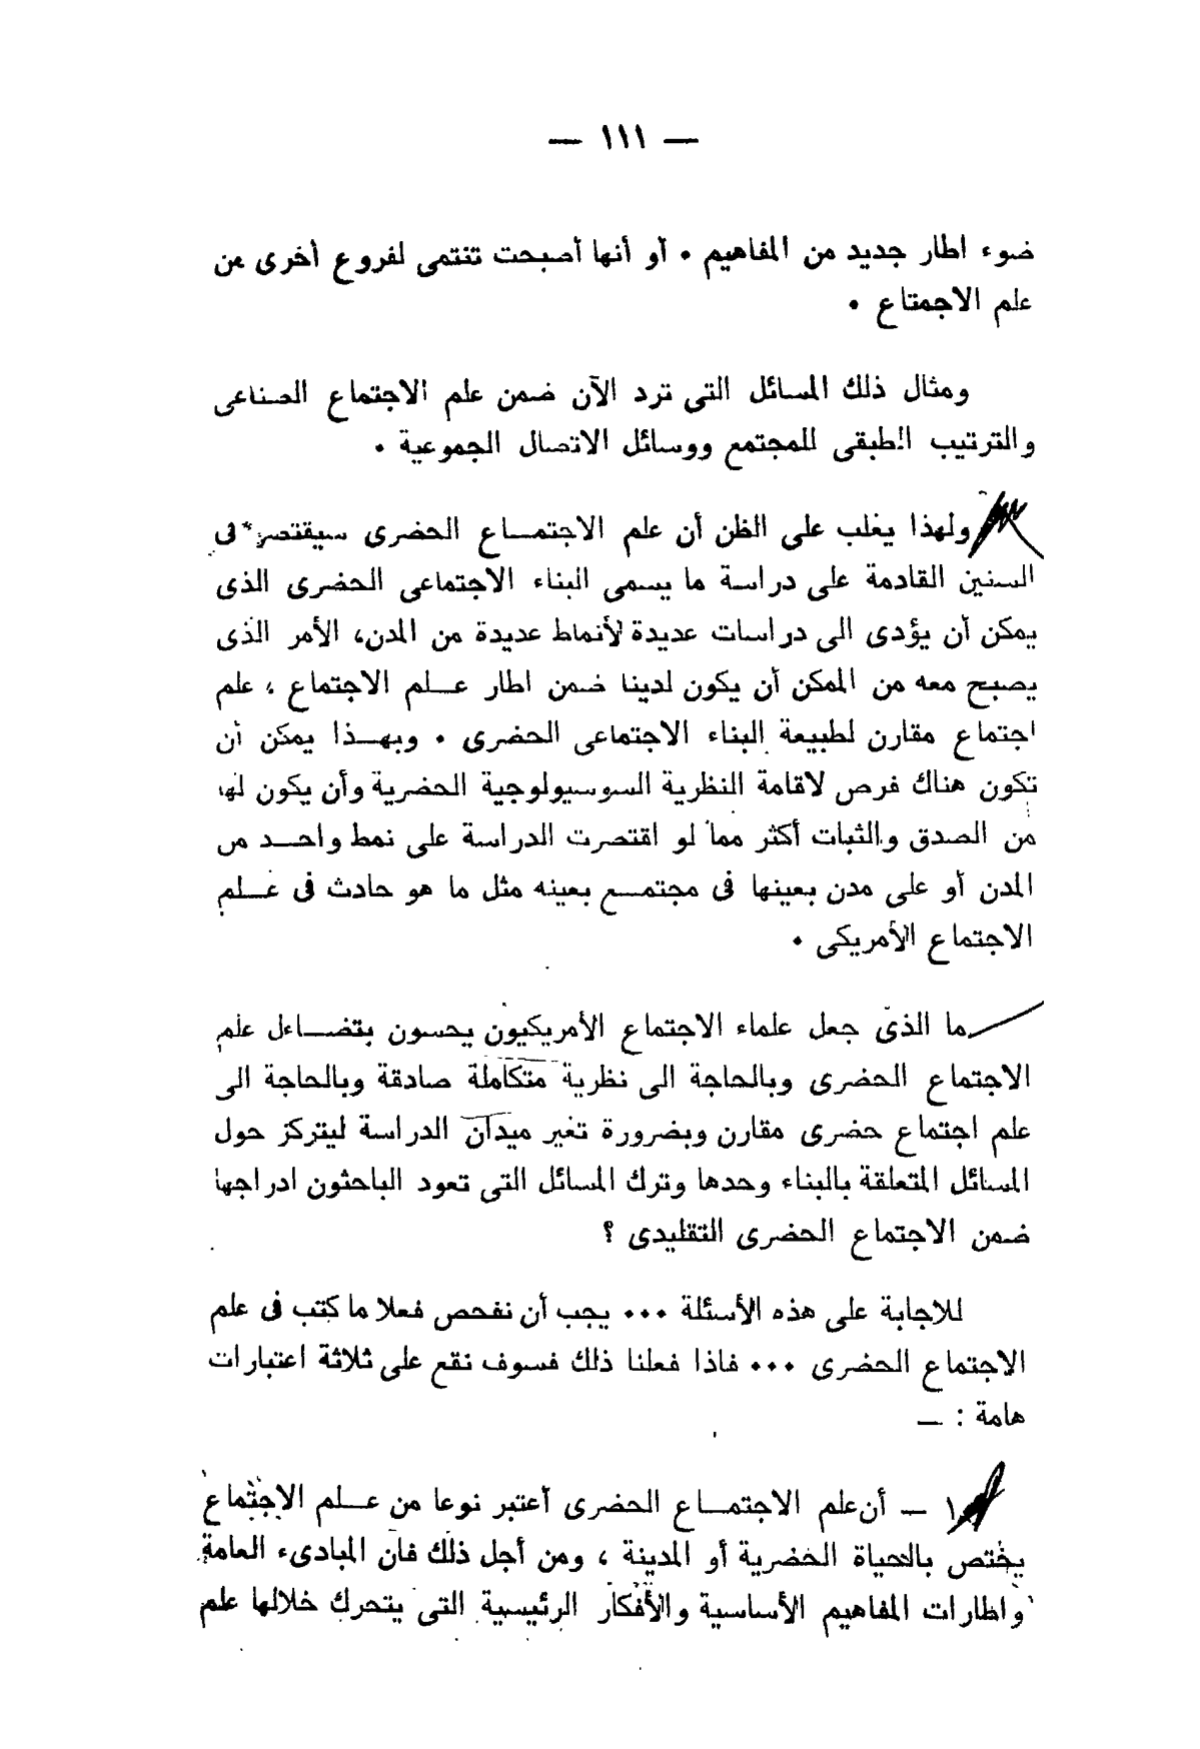 — ١١١ —
ضوء اطار جديد من المفاهيم . أو أنها أصبحت تنتمى لفروع أخرى من
علم الاجمتاع .
ومثال ذلك المسائل التى ترد الآن ضمن علم الاجتماع الصناعى
والترتيب الطبقى للمجتمع ووسائل الاتصال الجموعية .
ولهذا يغلب على الظن أن علم الاجتمــاع الحضرى سيقتصر فى
السنين القادمة على دراسة ما يسمى البناء الاجتماعى الحضرى الذى
يمكن أن يؤدى الى دراسات عديدة لأنماط عديدة من المدن، الأمر الذى
يصبح معه من الممكن أن يكون لدينا ضمن اطار عــلم الاجتماع ، علم
اجتماع مقارن لطبيعة البناء الاجتماعى الحضرى . وبهــذا يمكن أن
تكون هناك فرص لاقامة النظرية السوسيولوجية الحضرية وأن يكون لها
من الصدق والثبات أكثر مما لو اقتصرت الدراسة على نمط واحــد من
المدن أو على مدن بعينها فى مجتمــع بعينه مثل ما هو حادث فى عــلم
الاجتماع الأمريكى .
ما الذى جعل علماء الاجتماع الأمريكيون يحسون بتضــاءل علم
الاجتماع الحضرى وبالحاجة الى نظرية متكاملة صادقة وبالحاجة الى
علم اجتماع حضرى مقارن وبضرورة تغير ميدان الدراسة ليتركز حول
المسائل المتعلقة بالبناء وحدها وترك المسائل التى تعود الباحثون ادراجها
ضمن الاجتماع الحضرى التقليدى ؟
للاجابة على هذه الأسئلة ... يجب أن نفحص فعلا ما كتب فى علم
الاجتماع الحضرى ... فاذا فعلنا ذلك فسوف نقع على ثلاثة اعتبارات
هامة : —
١ — أن علم الاجتمــاع الحضرى أعتبر نوعا من عــلم الاجتماع
يختص بالحياة الحضرية أو المدينة ، ومن أجل ذلك فان المبادىء العامة
واطارات المفاهيم الأساسية والأفكار الرئيسية التى يتحرك خلالها علم